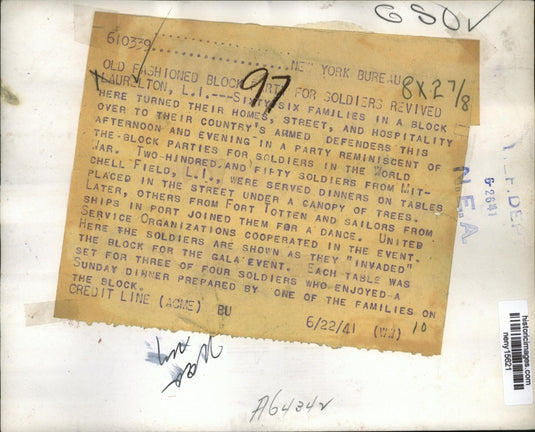 GSO
610339
NEW YORK BUREAU
8X2 7/8
OLD FASHIONED BLOCK PARTY FOR SOLDIERS REVIVED
97
LAURELTON, L.I.---SIXTY SIX FAMILIES IN A BLOCK
HERE TURNED THEIR HOMES, STREET, AND HOSPITALITY
OVER TO THEIR COUNTRY'S ARMED DEFENDERS THIS
AFTERNOON AND EVENING IN A PARTY REMINISCENT OF
THE BLOCK PARTIES FOR SOLDIERS IN THE WORLD
WAR. TWO-HUNDRED AND FIFTY SOLDIERS FROM MIT-
CHELL FIELD, L.I., WERE SERVED DINNERS ON TABLES
PLACED IN THE STREET UNDER A CANOPY OF TREES.
LATER, OTHERS FROM FORT TOTTEN AND SAILORS FROM
SHIPS IN PORT JOINED THEM FOR A DANCE. UNITED
SERVICE ORGANIZATIONS COOPERATED IN THE EVENT.
HERE THE SOLDIERS ARE SHOWN AS THEY "INVADED"
THE BLOCK FOR THE GALA EVENT. EACH TABLE WAS
SET FOR THREE OF FOUR SOLDIERS WHO ENJOYED A
SUNDAY DINNER PREPARED BY ONE OF THE FAMILIES ON
THE BLOCK.
CREDIT LINE (ACME) BU 6/22/41 (WW) 10
6-26 41
N.E.A.
historicimages.com
neny15621
A6434r